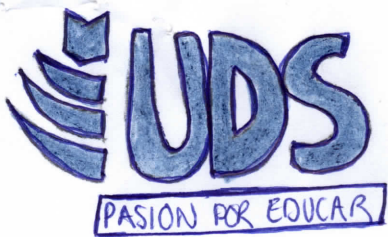 UDS
PASION POR EDUCAR